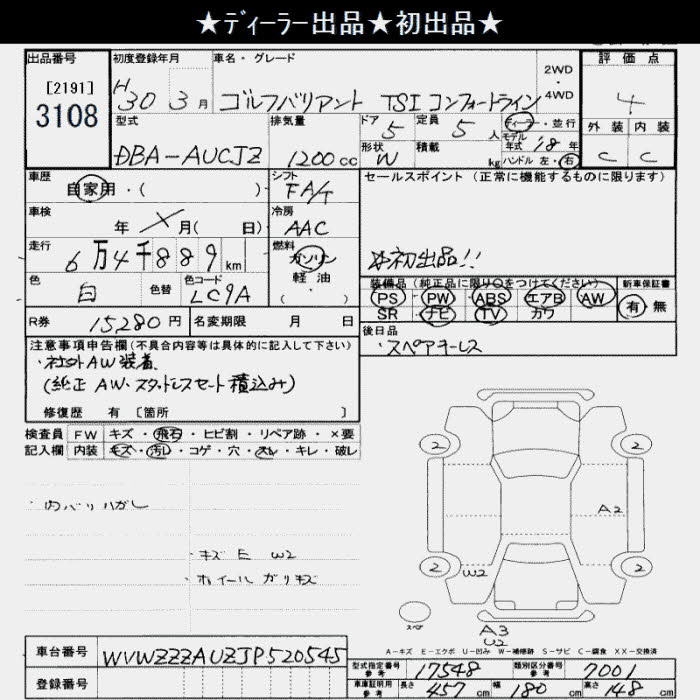 ★ディーラー出品★初出品★
出品番号 初度登録年月 車名・グレード 2WD・4WD 評価点
[2191] 3108 H30 3月 ゴルフバリアント TSI コンフォートライン 4
型式 排気量 ドア 5 定員 5人 ディーラー・並行 外装 内装
DBA-AUCJZ 1200cc 形状 W 積載 kg モデル年式 18年 ハンドル 左・右 C C
車歴 自家用・( ) シフト FA/T セールスポイント (正常に機能するものに限ります)
車検 年 月( 日) 冷房 AAC
走行 6万4千889km 燃料 ガソリン 軽油 ・( ) 初出品!!
色 白 色替 色コード LC9A 装備品(純正品に限り○をつけてください) 新車保証書
PS PW ABS エアB AW 有・無
SR ナビ TV カワ
R券 15280円 名変期限 月 日 後日品
・スペアキーレス
注意事項申告欄(不具合内容等は具体的に記入して下さい)
・社外AW装着
(純正AW、スタッドレスセット積込み)
修復歴 有 〔箇所 〕
検査員 FW キズ・飛石・ヒビ割・リペア跡・×要
記入欄 内装 キズ・汚レ・コゲ・穴・スレ・キレ・破レ
・内バリハガレ
・キズ E W2
・ホイールガリキズ
2 2
A2
2 W2 2
スペア A3
U2
A-キズ E-エクボ U-凹み W-補修跡 S-サビ C-腐食 XX-交換済
車台番号 WVWZZZAUZJP520545 型式指定番号 参考 17548 類別区分番号 参考 7001
登録番号 車庫証明用 参考 長さ 457cm 幅 180cm 高さ 148cm